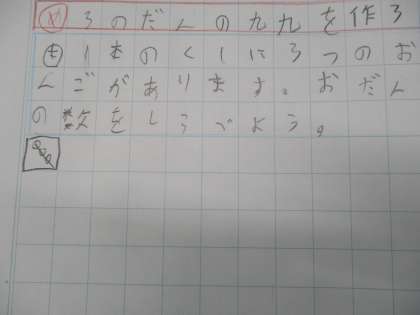 め 3のだんの九九を作ろ
も 1本のくしに3つのお
んごがあります。おだん
の数をしらべよう。